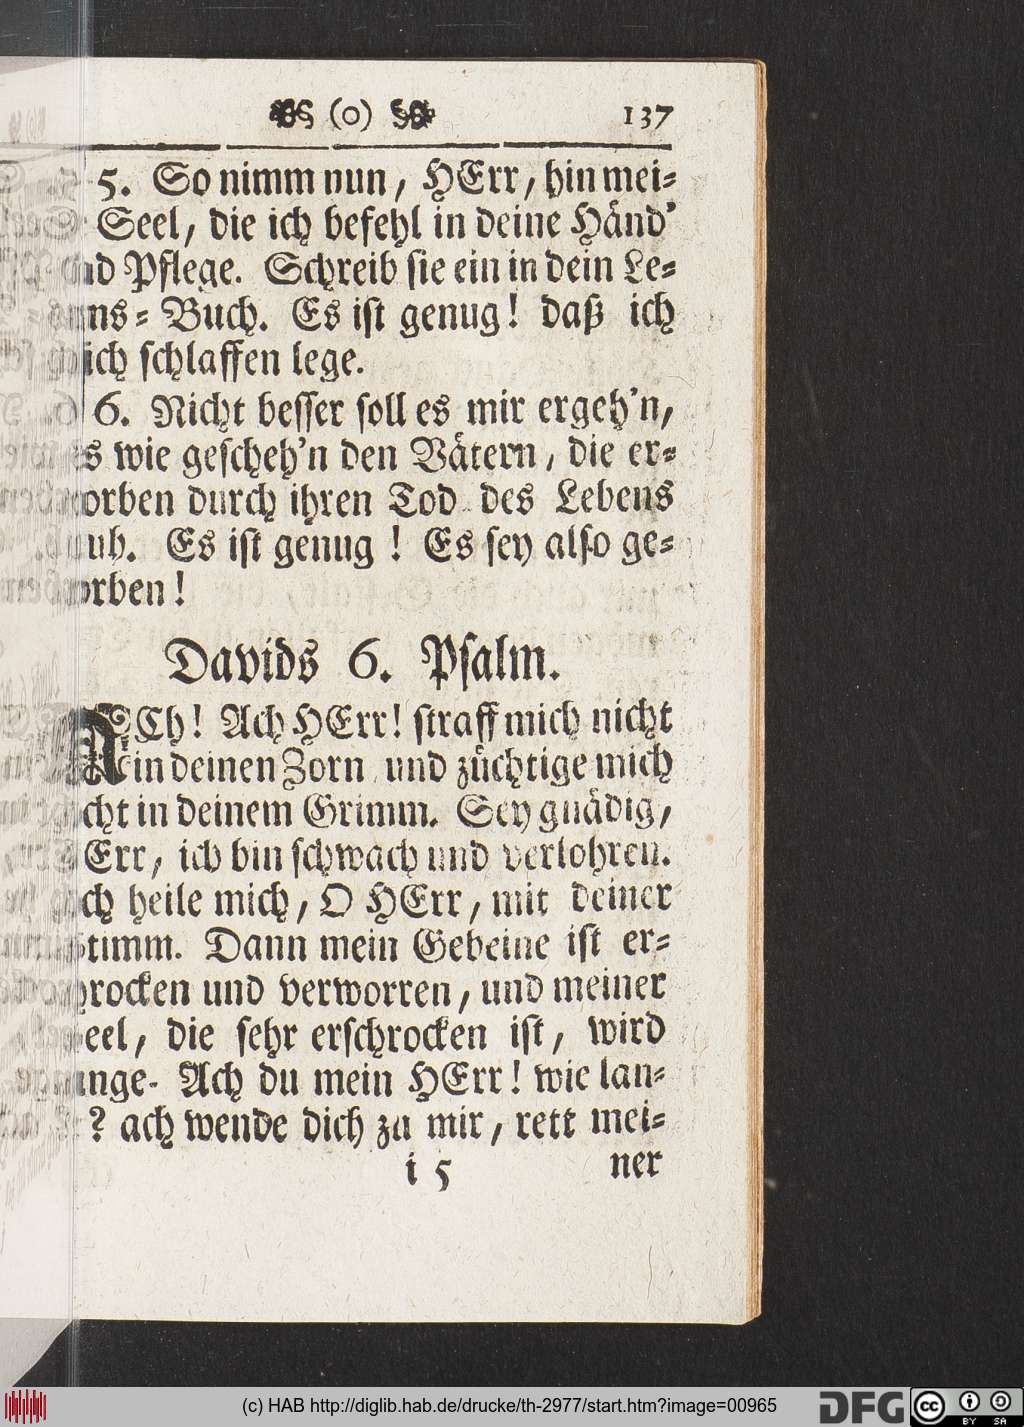 (o) 137
5. So nimm nun, HErr, hin mei=
Seel, die ich befehl in deine Händ'
nd Pflege. Schreib sie ein in dein Le=
ns=Buch. Es ist genug! daß ich
ich schlaffen lege.
6. Nicht besser soll es mir ergeh'n,
s wie gescheh'n den Vätern, die er=
orben durch ihren Tod des Lebens
uh. Es ist genug! Es sey also ge=
orben!
Davids 6. Psalm.
ACh! Ach HErr! straff mich nicht
in deinen Zorn und züchtige mich
cht in deinem Grimm. Sey gnädig,
Err, ich bin schwach und verlohren.
ch heile mich, O HErr, mit deiner
timm. Dann mein Gebeine ist er=
rocken und verworren, und meiner
eel, die sehr erschrocken ist, wird
nge. Ach du mein HErr! wie lan=
? ach wende dich zu mir, rett mei=
i 5 ner
(c) HAB http://diglib.hab.de/drucke/th-2977/start.htm?image=00965
DFG
cc BY SA